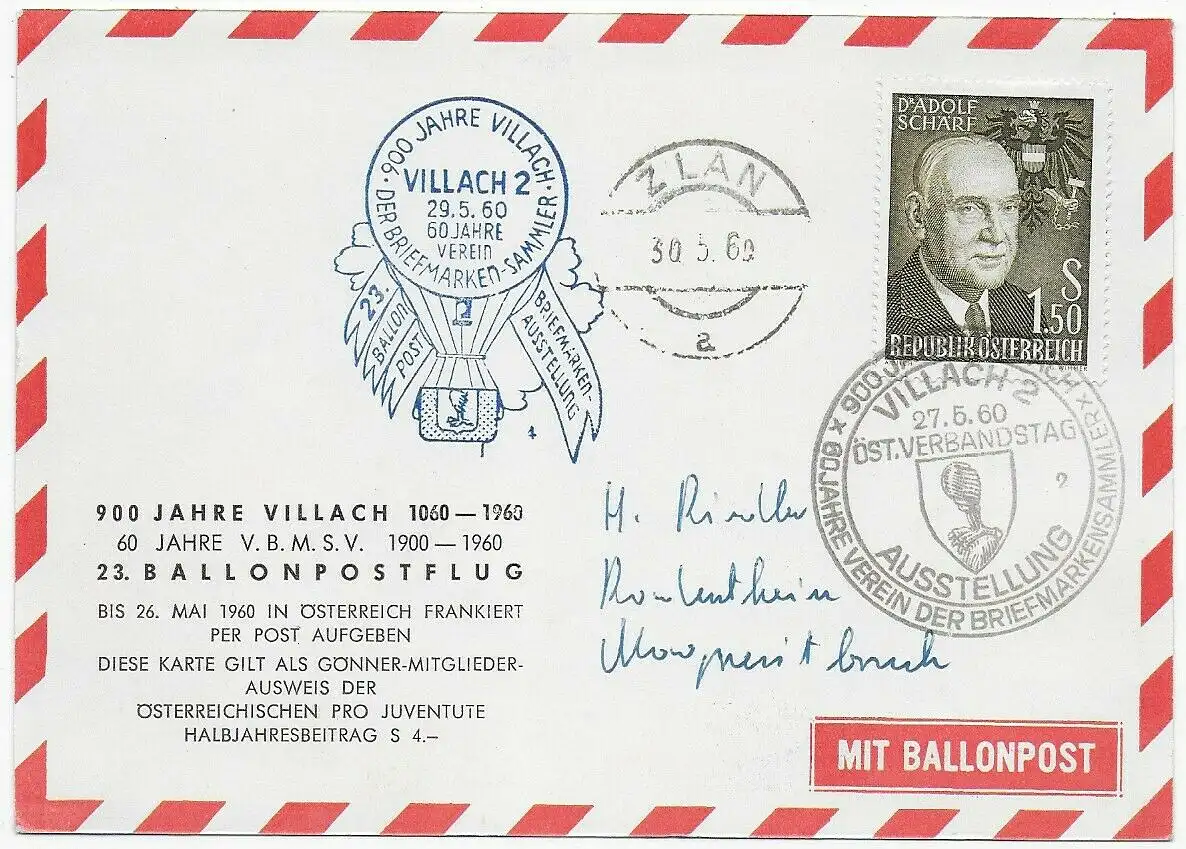 900 JAHRE VILLACH · DER BRIEFMARKEN-SAMMLER ·
VILLACH 2
29.5.60
60 JAHRE
VEREIN
23.
BALLON
POST
2
BRIEFMARKEN-
AUSSTELLUNG
ZLAN
30.5.60
a
DR ADOLF
SCHÄRF
S
1.50
REPUBLIK ÖSTERREICH
G. WIMMER
VILLACH 2
27.5.60
ÖST. VERBANDSTAG
2
AUSSTELLUNG
× 60 JAHRE VEREIN DER BRIEFMARKENSAMMLER × 900 JAHRE
900 JAHRE VILLACH 1060 — 1960
60 JAHRE V. B. M. S. V. 1900 — 1960
23. BALLONPOSTFLUG
BIS 26. MAI 1960 IN ÖSTERREICH FRANKIERT
PER POST AUFGEBEN
DIESE KARTE GILT ALS GÖNNER-MITGLIEDER-
AUSWEIS DER
ÖSTERREICHISCHEN PRO JUVENTUTE
HALBJAHRESBEITRAG S 4.–
H. Riedler
Radentheim
MIT BALLONPOST